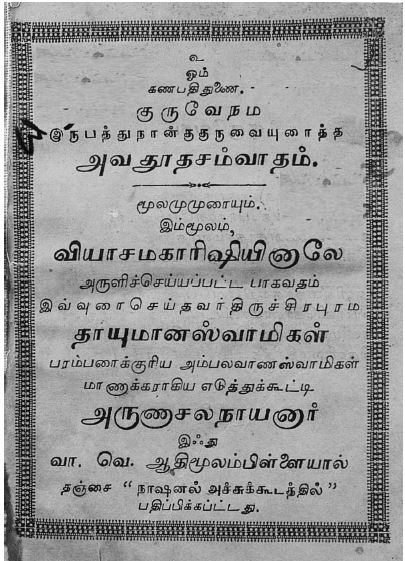 உ
ஓம்
கணபதிதுணை.
குருவேநம
இருபத்துநான்குகுருவையுரைத்த
அவதூதசம்வாதம்.
மூலமுமுரையும்.
இம்மூலம்,
வியாசமகாரிஷியினாலே
அருளிச்செய்யப்பட்ட பாகவதம்
இவ்வுரைசெய்தவர்திருச்சிரபுரம
தாயுமானஸ்வாமிகள்
பரம்பரைக்குரிய அம்பலவாணஸ்வாமிகள்
மாணாக்கராகிய எடுத்துக்கூட்டி
அருணாசலநாயனார்
இஃது
வா. வெ. ஆதிமூலம்பிள்ளையால்
தஞ்சை "நாஷனல் அச்சுக்கூடத்தில்"
பதிப்பிக்கப்பட்டது.